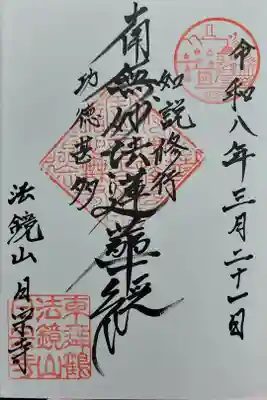 令和八年三月二十一日
如説修行
南無妙法蓮華経
功徳甚多
法鏡山 日栄寺
法鏡山